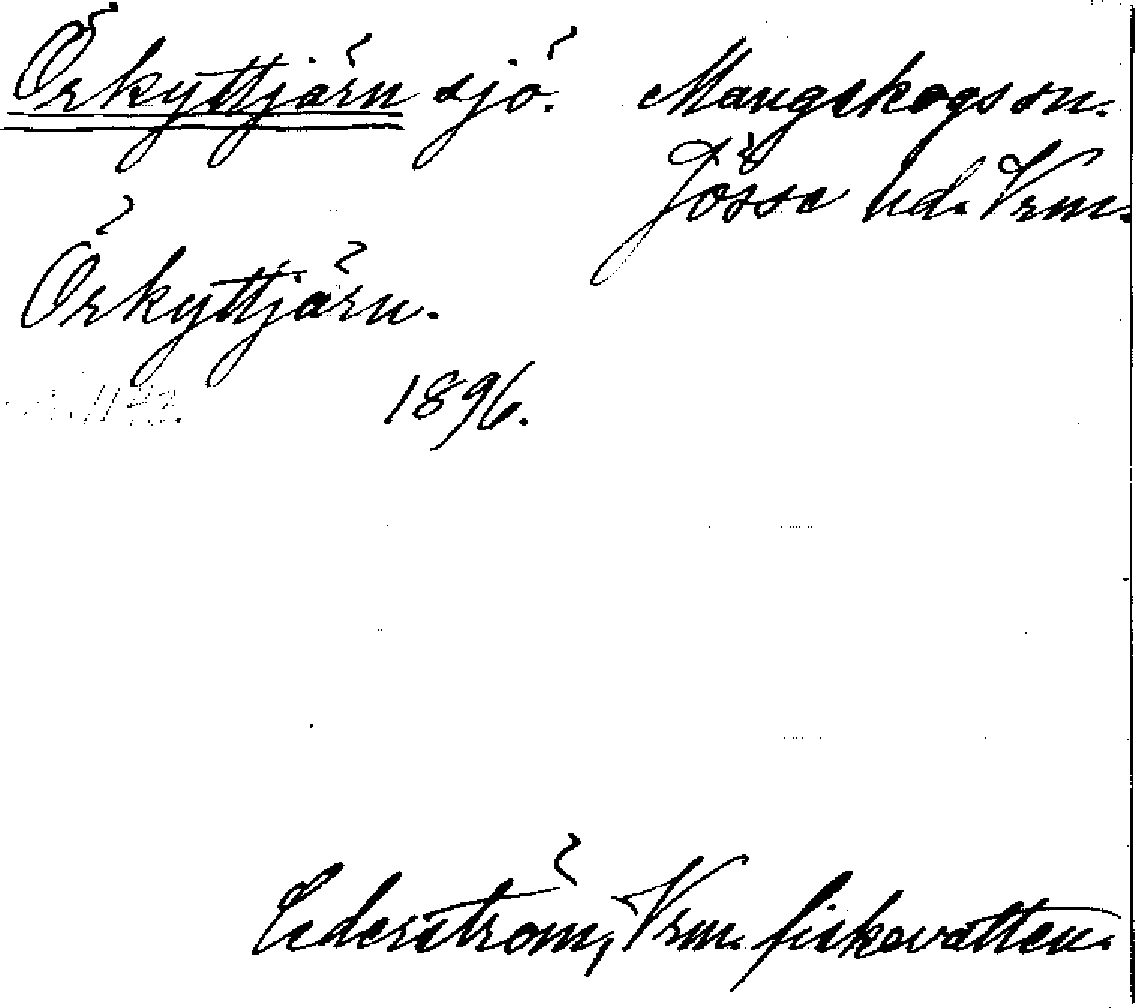 Örkyttjärn sjö. Mangskogs sn.
Jösse hd. Vrm.
Örkyttjärn.
1896.
Cederström, Vrm. fiskevatten.